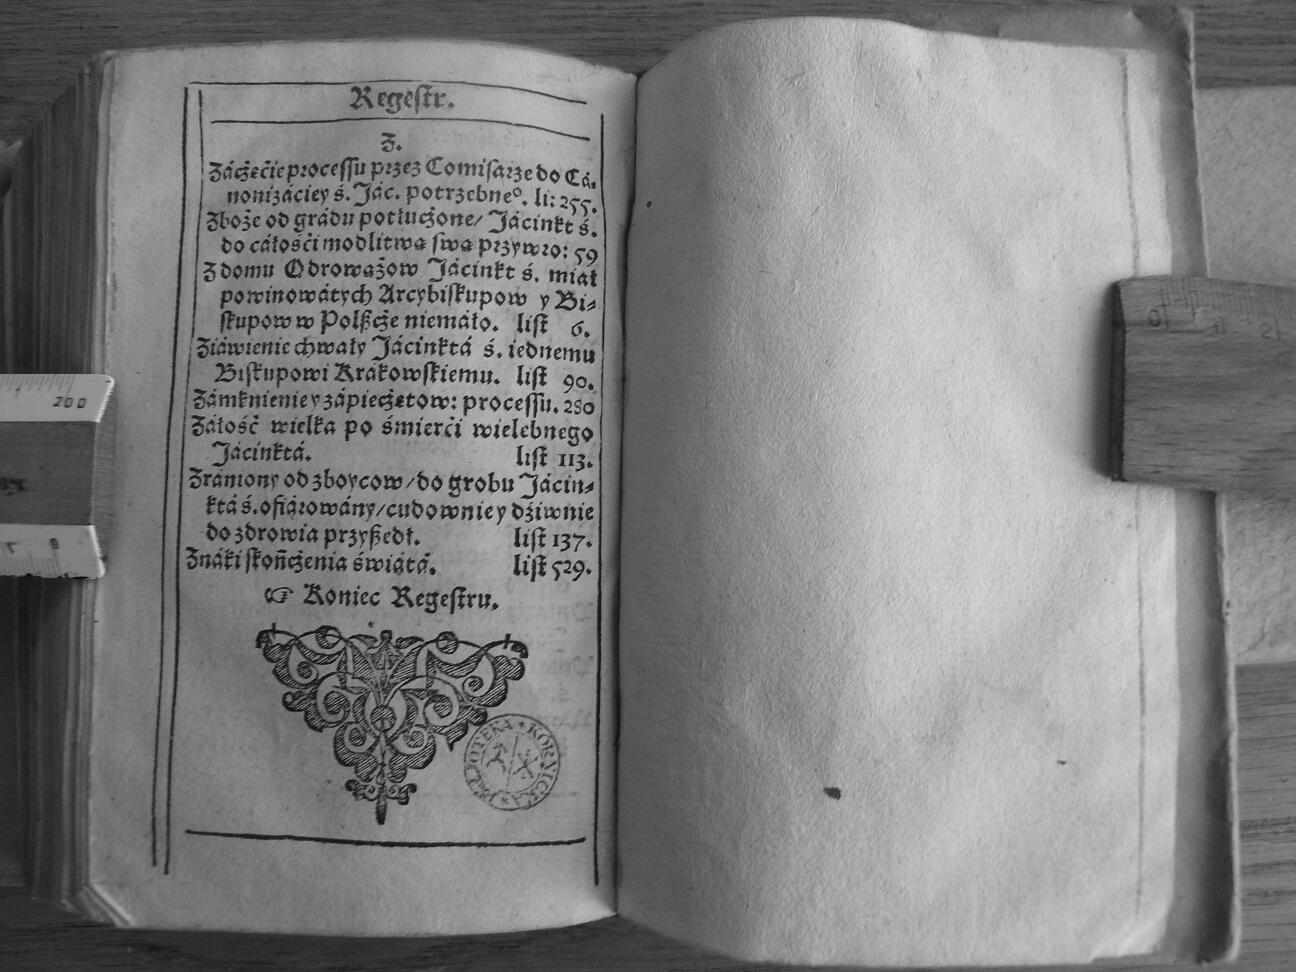 Regestr.
Z.
Záczęćie processu przez Comisarze do Cá-
nonizáciey ś. Jác. potrzebneº. li: 255.
Zboże od grádu potłuczone/ Jácinkt ś.
do cáłośći modlitwą swą przywro: 59
Z domu Odrowążow Jácinkt ś. miał
powinowátych Arcybiskupow y Bi-
skupow w Polszcze niemáło. list 6.
Ziáwienie chwały Jácinktá ś. iednemu
Biskupowi Krákowskiemu. list 90.
Zámknienie y zápieczętow: processu. 280
Załość wielka po śmierći wielebnego
Jácinktá. list 113.
Zraniony od zboycow/ do grobu Jácin-
ktá ś. ofiárowány/ cudownie y dźiwnie
do zdrowia przyszedł. list 137.
Znáki skończenia świátá. list 529.
☞ Koniec Regestru.
BIBLIOTEKA KÓRNICKA
200
0 1 2